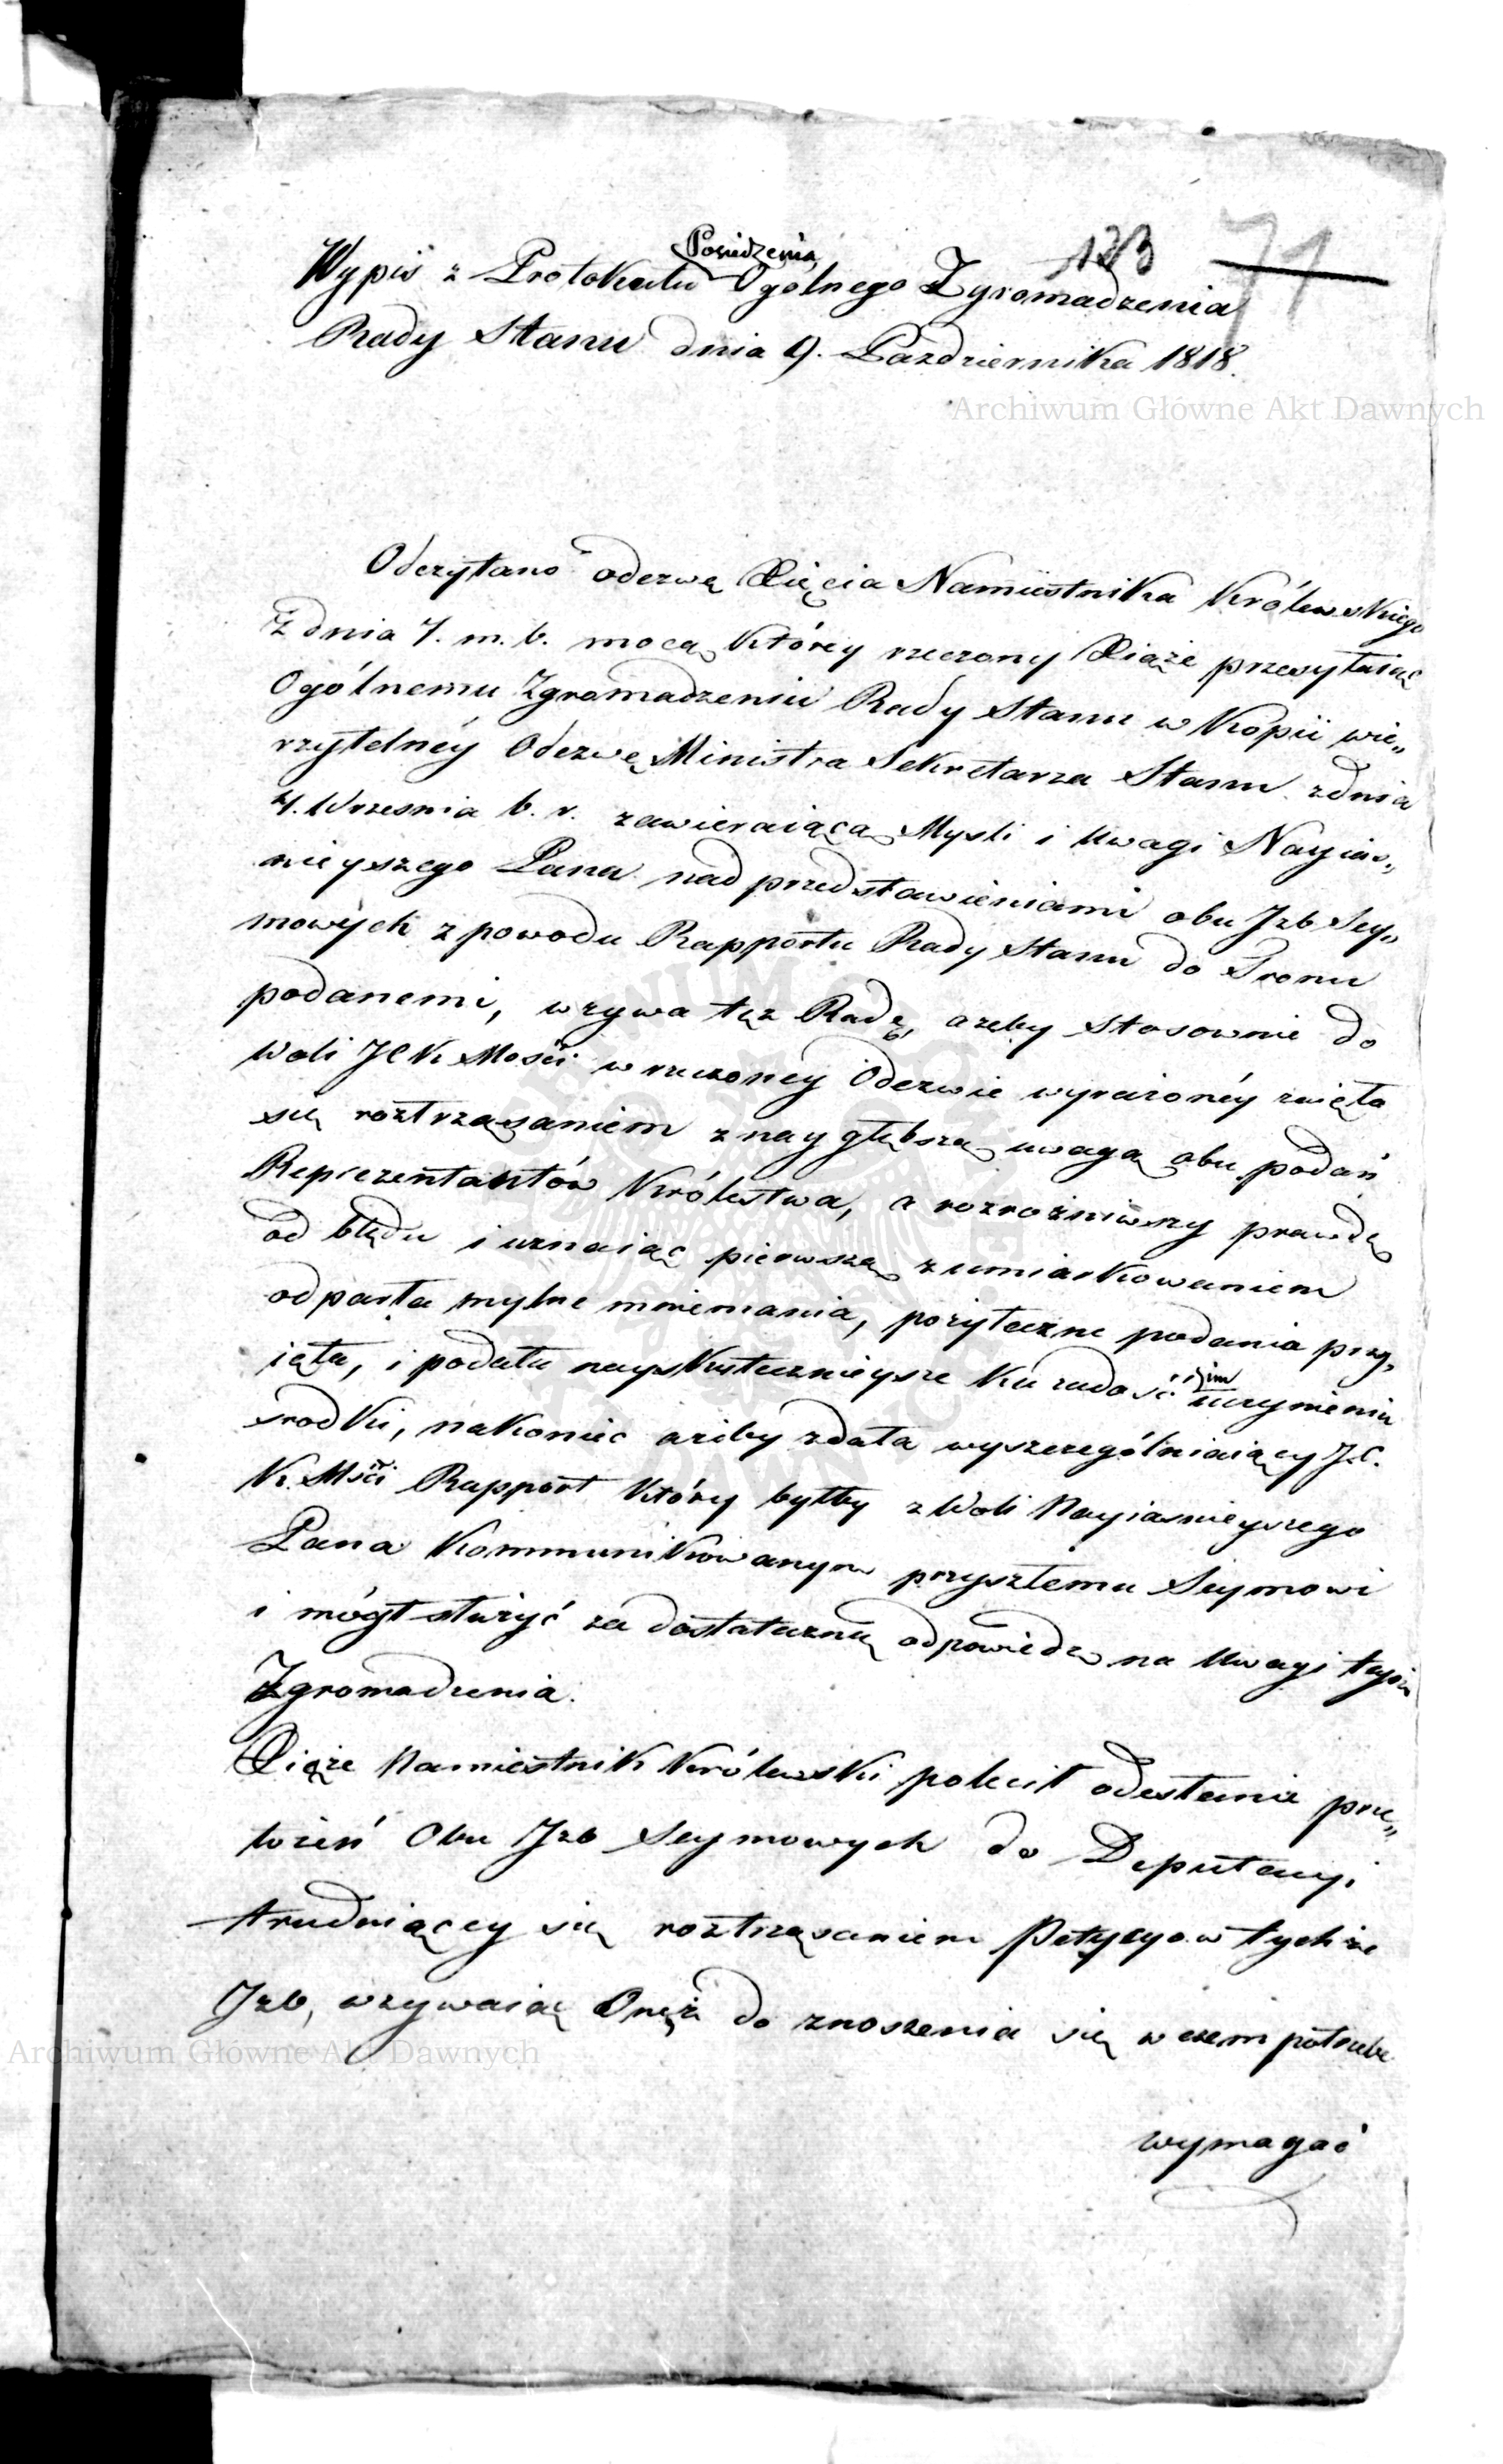 123 71
Posiedzenia
Wypis z Protokułu Ogólnego Zgromadzenia
Rady Stanu dnia 9. Października 1818.
Archiwum Główne Akt Dawnych
Odczytano odezwę Xięcia Namiestnika Królewskiego
z dnia 7. m. b. mocą którey rzeczony Xiąże przesyłaiąc
Ogólnemu Zgromadzeniu Rady Stanu w Kopii wie„
rzytelnéy Odezwę Ministra Sekretarza Stanu z dnia
4. Wrzesnia b. r. zawieraiącą Mysli i Uwagi Nayias„
nieyszego Pana nad przedstawieniami obu Jzb Sey„
mowych z powodu Rapportu Rady Stanu do Tronu
podanemi, wzywa też Radę, ażeby stosownie do
Woli JCK Mości w rzeczoney Odezwie wyrażonéy zaięła
się roztrząsaniem z naygłębszą uwagą obu podań
Reprezentantów Królestwa, a rozrożniwszy prawdę
od błędu i uznaiąc pierwszą z umiarkowaniem
odparła mylne mniemania, pożyteczne podania przy„
ięła, i podała nayskutecznieysze ku zadość im uczynieniu
srodki, nakoniec ażeby zdała wyszczególniaiący J.C.
K. Mści Rapport który byłby z Woli Nayiasnieyszego
Pana Kommunikowanym przyszłemu Seymowi
i mógł służyć za dostateczną odpowiedz na Uwagi tegoż
Zgromadzenia.
Xiąże Namiestnik Królewski polecił odesłanie prze„
łożeń Obu Jzb Seymowych do Deputacyi
trudniącey się roztrząsaniem Petycyow tychże
Jzb, wzywaiąc Onęż do znoszenia się w czem potrzeba
Archiwum Główne Akt Dawnych
wymagać